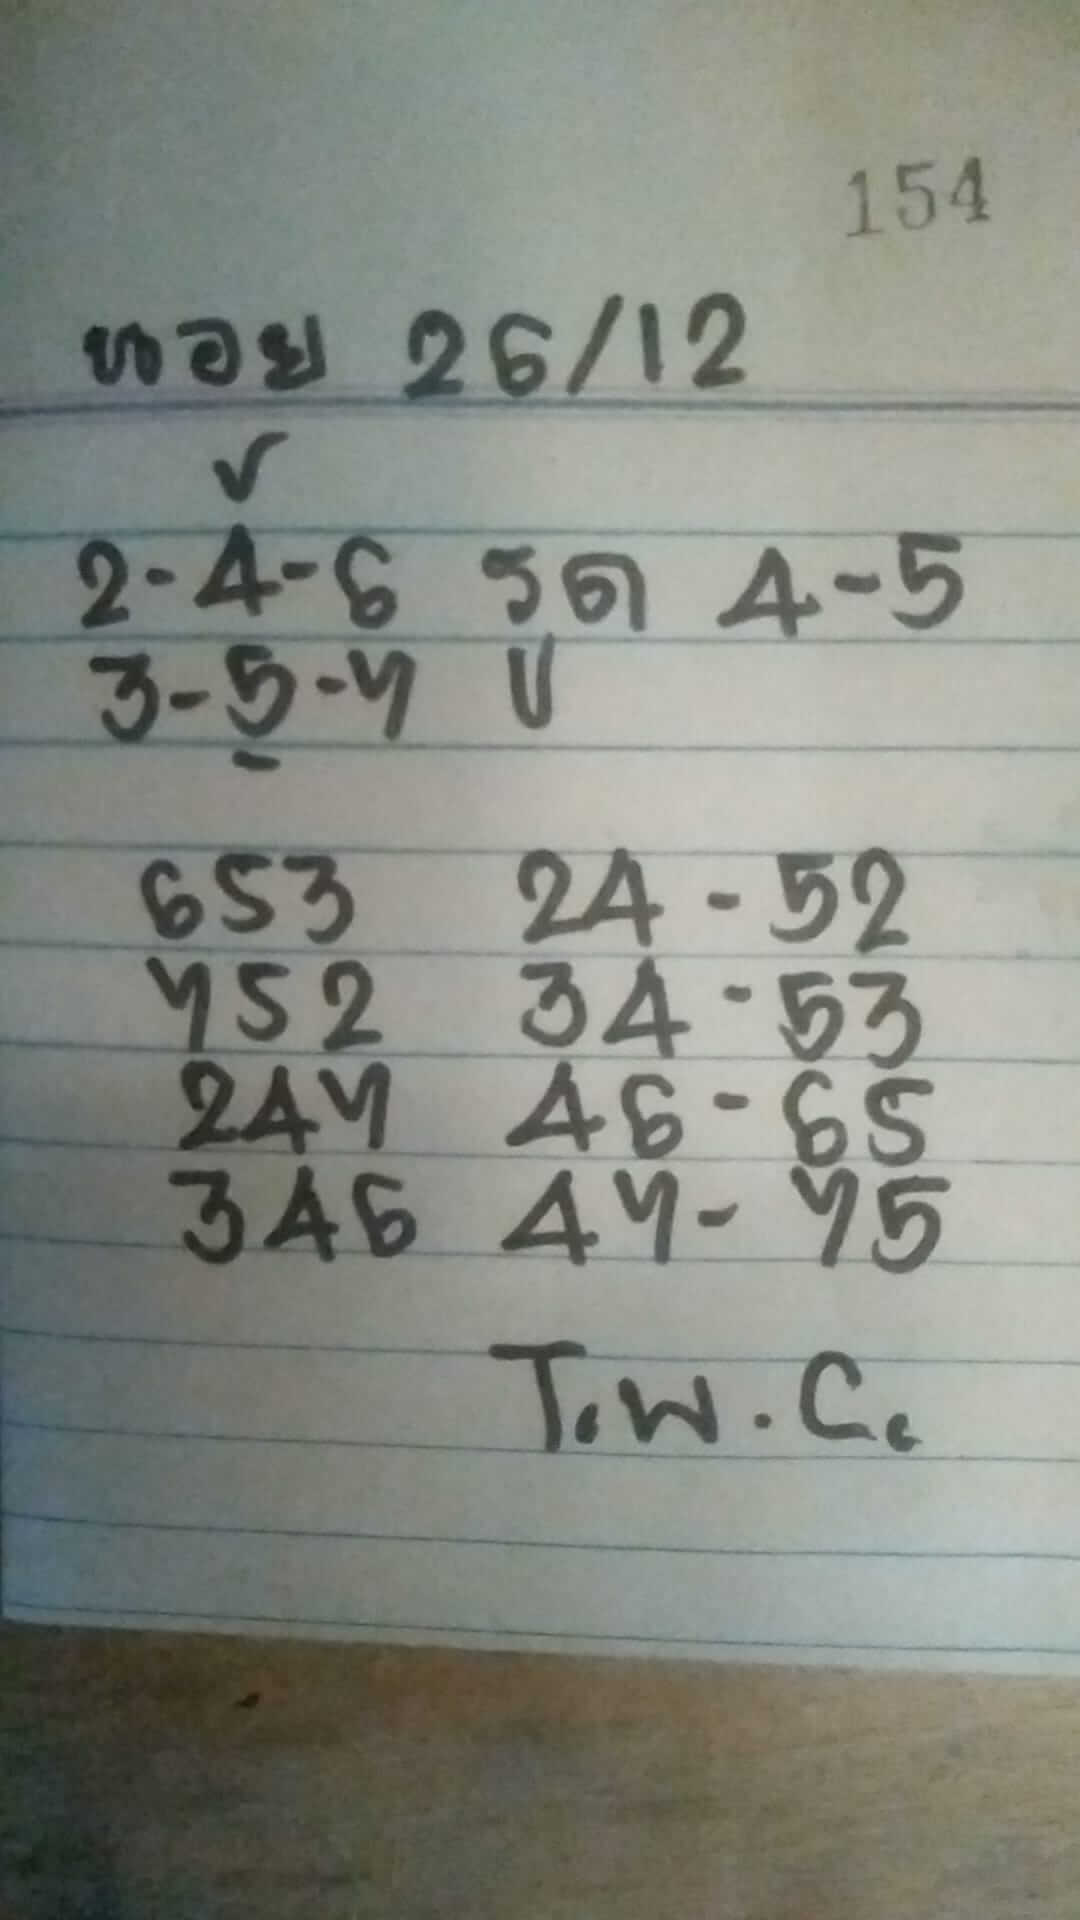 154
หอย 26/12
√
2-4-6 รูด 4-5
3-5-7 ป
653 24 - 52
752 34 - 53
247 46 - 65
346 47 - 75
T.W.C.